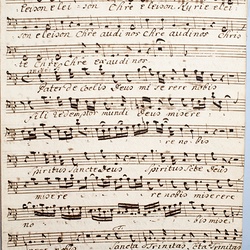 leison elei son Chre eleison Kyrie elei
son eleison Chre audi nos Chre audi nos Chris
te Chre Chre exaudi nos
Pater de Coelis Deus mi se rere nobis
Fili Redemptor mundi Deus misere
re nobis
Spiritus Sancte Deus Spiritus Scte Deus
misere re nobis miserere
no bis mise
Sancta Trinitas, Sta Trinitas